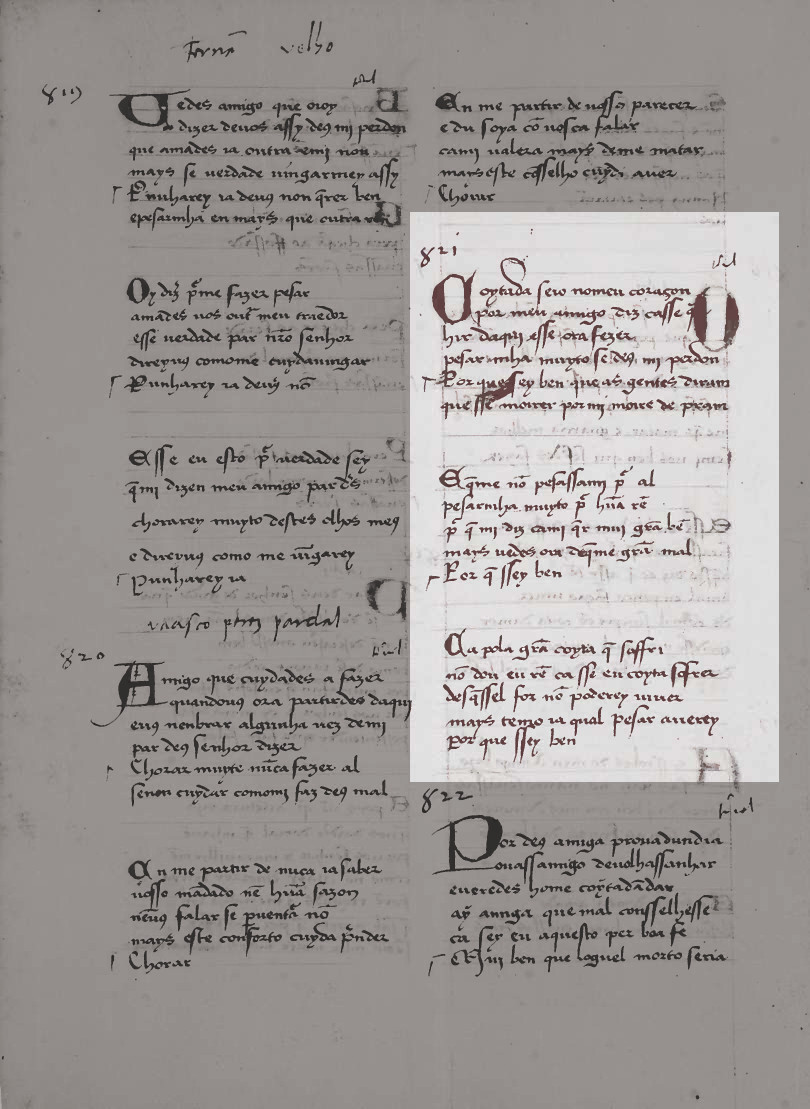 Fernã velho
819
Vedes amigo que oioy
dizer deuos assy de9 mi perdon
que amades ia outra emi non
mays se uerdade uingarmey assy
Punharey ia deuos non q̃rer ben
epesarmha en mays que outra rẽ
Oy diz̃ p̃me fazer pesar
amades uos out̃ meu traedor
esse uerdade par nr̃o senhor
direyu9 comome cuydauingar
Punharey ia deu9 nõ
Esse eu esto p̃ uerdade sey
q̃mi dizen meu amigo par ds̃
chorarey muyto destes olhos me9
e direyu9 como me uĩgarey
Punharey ia
vaasco ptrz pardal
820
Amigo que cuydades a fazer
quandou9 ora partirdes daqui
eu9 nenbrar algunha uez demi
par de9 senhor dizer
Chorar muyte nũca fazer al
senon cuydar comomi faz de9 mal
En me partir de nuca ia saber
uosso mãdado nẽ hũa sazon
neu9 falar se p uentã nõ
mays este conforto cuyda p̃nder
Chorar
En me partir de uosso parecer
e du soya cõ uosca falar
cami ualera mays deme matar
mays este cõsselho cuyda auer
Chorar
821
Coytada seio nomeu coraçon
por meu amigo diz casse q̃
hir daqui esse ora fezer
pesar mha muyto se de9 mi perdon
Por que ssey ben que as gentes diram
que sse moirer pormi moire de pram
E q̃me nõ pesassami p̃ al
pesarmha muyto p̃ hũa rẽ
p̃ q̃ mi diz cami q̃r mui grã bẽ
mays uedes ora deq̃me grã mal
Por q̃ ssey ben
Ca pola grã coyta q̃ soffri
nõ dou eu rẽ ca sse eu coyta sofrer
desq̃ssel for nõ poderey uiuer
mays tenno ia qual pesar auerey
por que ssey ben
822
Por de9 amiga prouadundia
ouassamigo deuolhassanhar
eueredes home coytadãdar
ay amiga que mal consselhesse
ca sey eu aquesto per boa fe
Mui ben que loguel morto seria